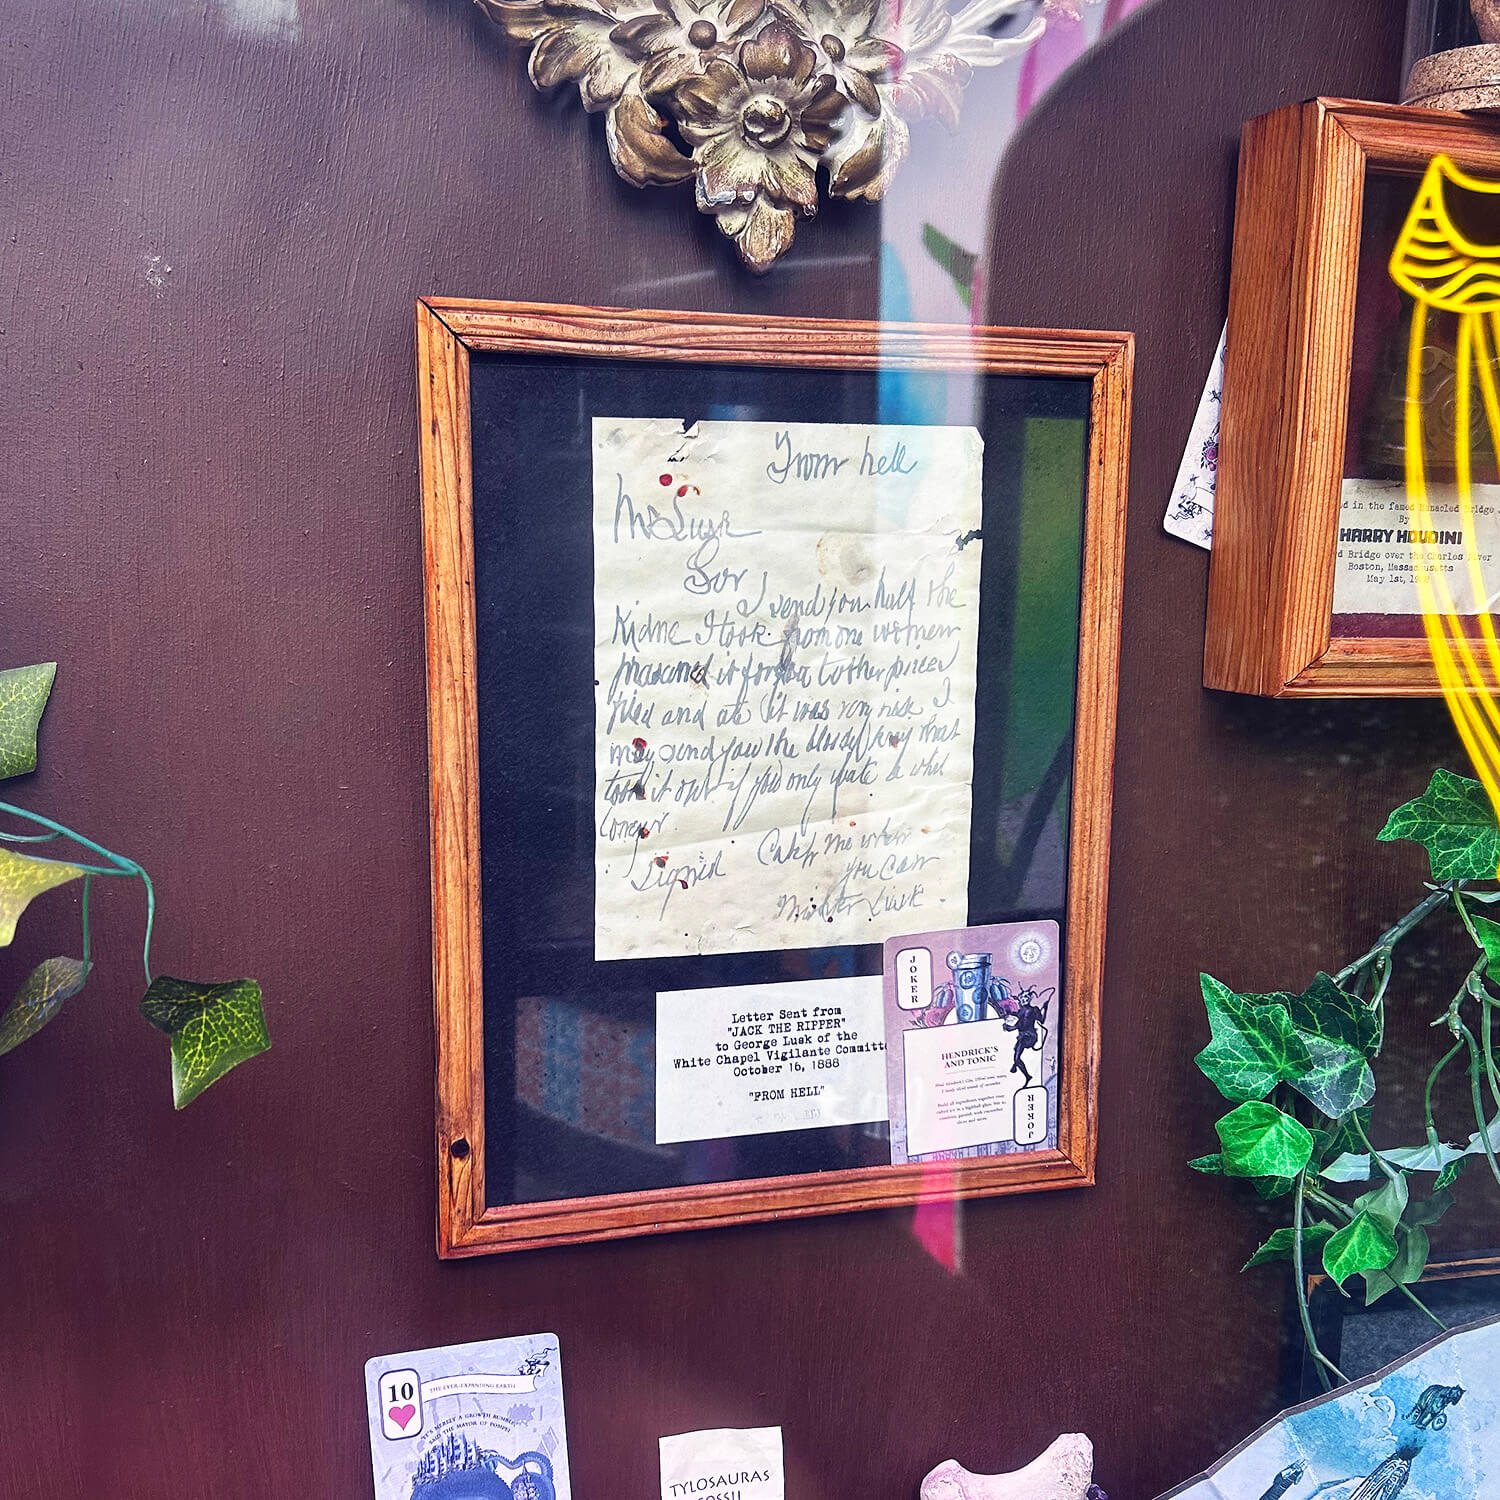 From hell
Mr Lusk
Sor
I send you half the
Kidne I took from one women
prasarved it for you tother piece I
fried and ate it was very nise I
may send you the bloody knif that
took it out if you only wate a whil
longer.
Signed
Catch me when
you Can
Mishter Lusk
Letter Sent from
"JACK THE RIPPER"
to George Lusk of the
White Chapel Vigilante Committe
October 16, 1888
"FROM HELL"
JOKER
HENDRICK'S
AND TONIC
JOKER
d in the famed Manacled Bridge
By
HARRY HOUDINI
d Bridge over the Charles River
Boston, Massachusetts
May 1st,
10
THE EVER-EXPANDING EARTH
"IT'S MERELY A GROWTH RUMBLE,"
SAID THE MAYOR OF POMPEI
TYLOSAURAS
FOSSIL